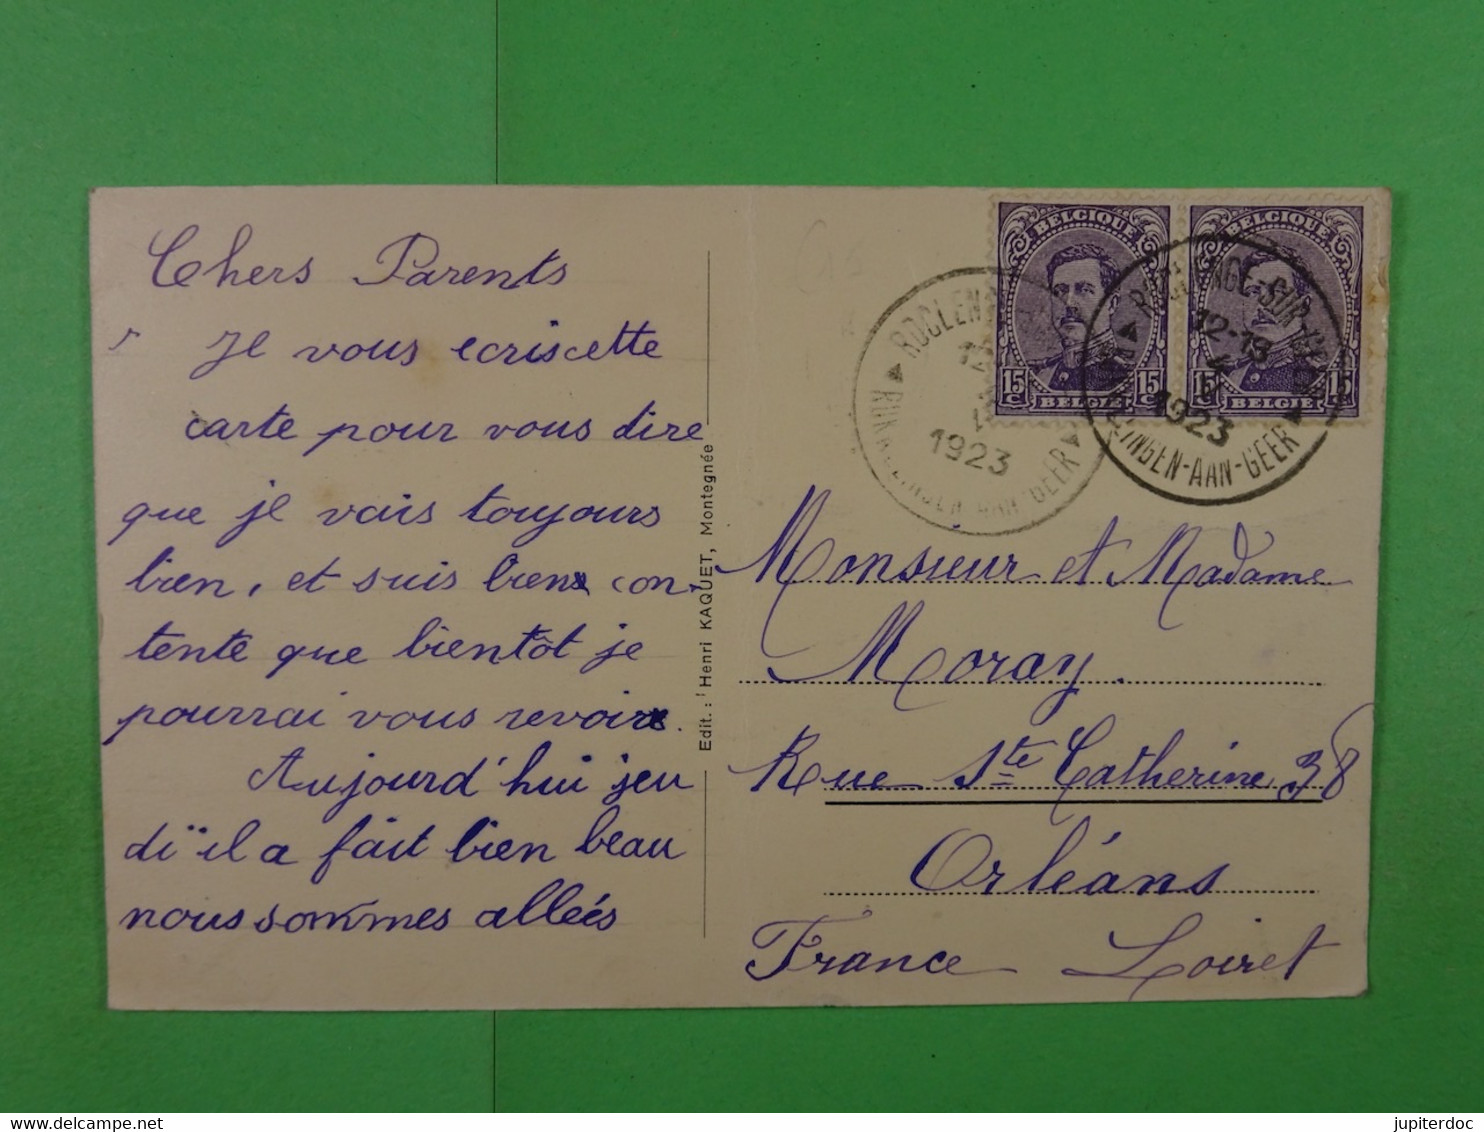 Chers Parents
Je vous ecriscette
carte pour vous dire
que je vais toujours
bien, et suis bien con-
tente que bientôt je
pourrai vous revoir.
Aujourd'hui jeu
di il a fait bien beau
nous sommes alleés
Edit.: Henri KAQUET, Montegnée
BELGIQUE
15c 15c
BELGIE
BELGIQUE
15c 15
BELGIE
ROCLEN
12
1923
AAN-GEER
12-13
1923
INGEN-AAN-GEER
Monsieur et Madame
Moray.
Rue Ste Catherine 38
Orléans
France Loiret
www.delcampe.net
jupiterdoc